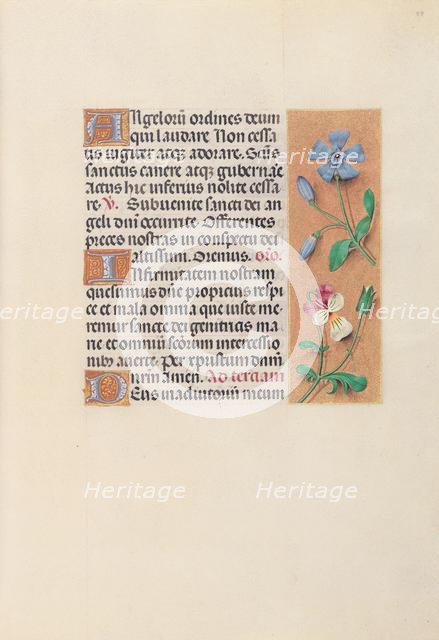 Angeloru̅ ordines deum
qui laudare Non cessa
tis iugiter atq3 adorare. Sc̅us
sanctus canere atq3 guberna̅
Actus hic inferius nolite cessa
re. V. Subuenite sancti dei an
geli dn̅i occurite. Offerentes
preces nostras in conspectu dei
altissimi. Oremus. oro.
Infirmitatem nostram
quesumus dn̅e propicius respi
ce et mala omnia que iuste me
remur sancte dei genitricis ma
rie et omniu̅ sc̅orum intercessio
nib9 auerte. Per xpustum dn̅m
nr̅m Amen. Ad terciam
Deus in adiutoriu̅ meum
Heritage
Heritage
Heritage
Heritage
Heritage
Heritage